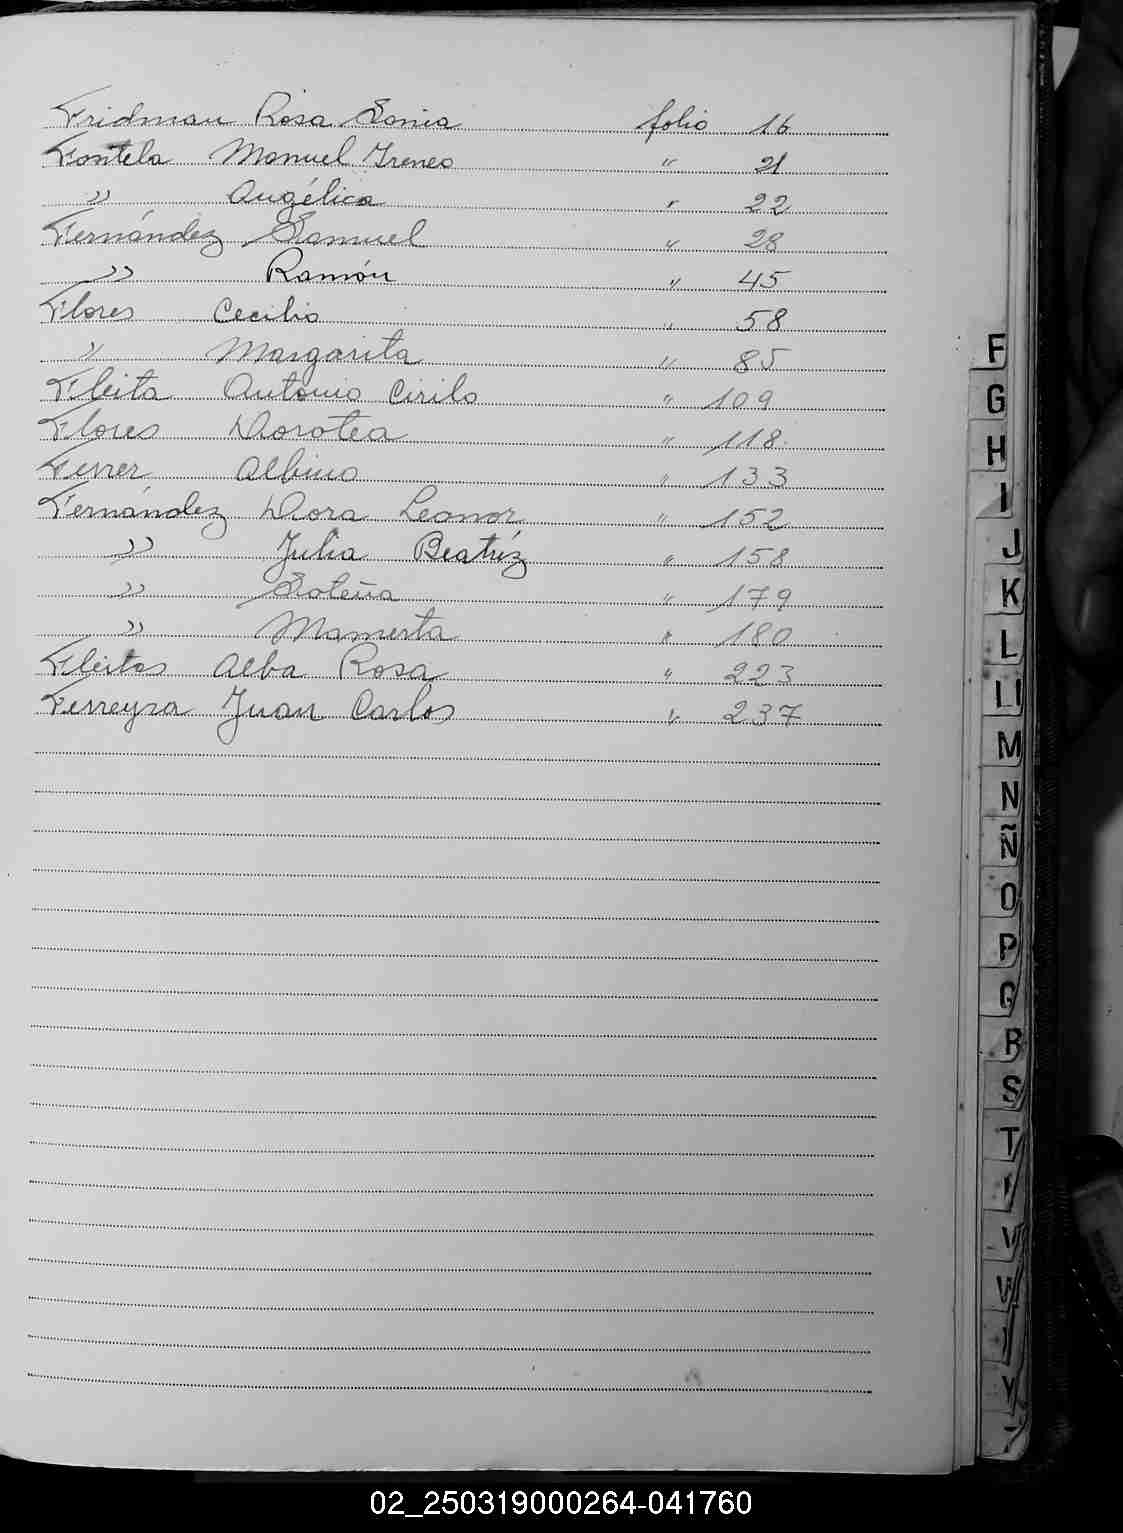 Fridman Rosa Sonia folio 16
Fontela Manuel Ireneo " 21
" Angélica " 22
Fernández Samuel " 28
" Ramón " 45
Flores Cecilio " 58
" Margarita " 85
Fleita Antonio Cirilo " 109
Flores Dorotea " 118
Ferrer Albino " 133
Fernández Dora Leonor " 152
" Julia Beatríz " 158
" " 179
" Mamerta " 180
Fleitas Alba Rosa " 223
Ferreyra Juan Carlos " 237
F
G
H
I
J
K
L
Ll
M
N
Ñ
O
P
Q
R
S
T
V
W
Y
02_250319000264-041760